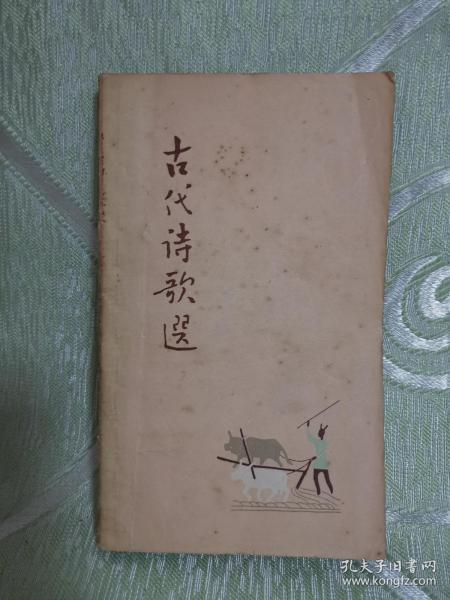 古代诗歌選
孔夫子旧书网
www.kongfz.com